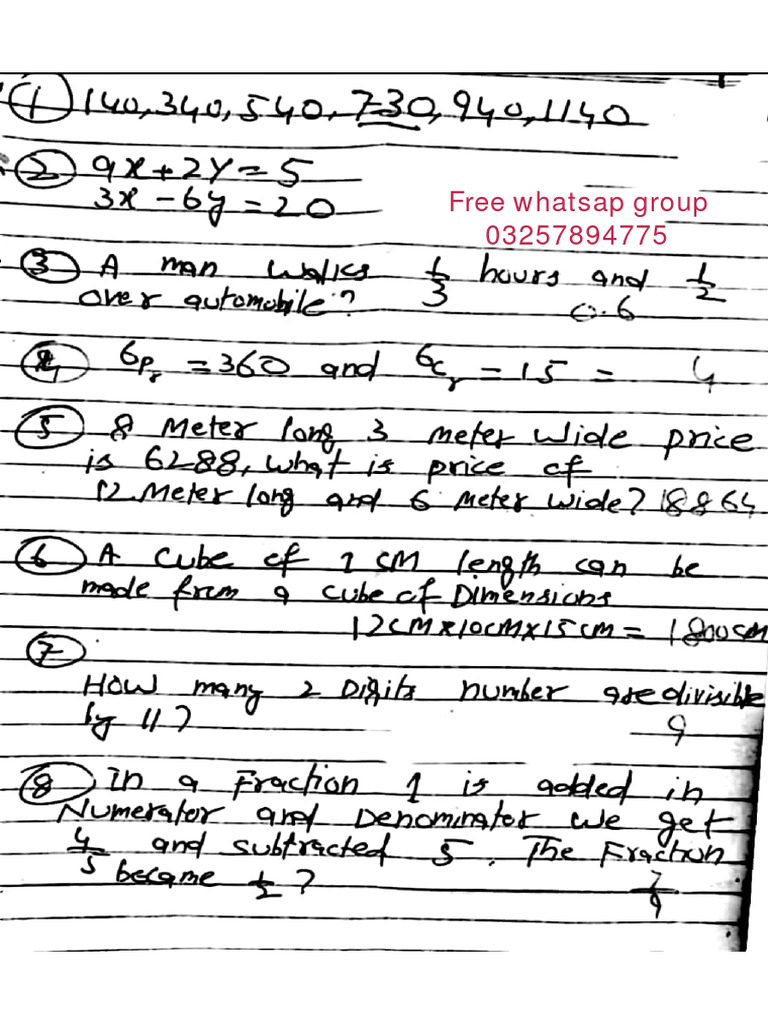 1 140, 340, 540, 730, 940, 1140
2 9x + 2y = 5
3x - 6y = 20
Free whatsap group
03257894775
3 A man walks 1/3 hours and 1/2
over automobile? 0.6
4 6Pr = 360 and 6Cr = 15 = 4
5 8 Meter long 3 meter wide price
is 6288, what is price of
12 Meter long and 6 meter wide? 18864
6 A cube of 1 CM length can be
made from a cube of Dimensions
12CM x 10CM x 15CM = 1800CM
7
How many 2 Digits number are divisible
by 11? 9
8 In a Fraction 1 is added in
Numerator and Denominator we get
4/5 and subtracted 5. The Fraction
became 1/2? 7/9